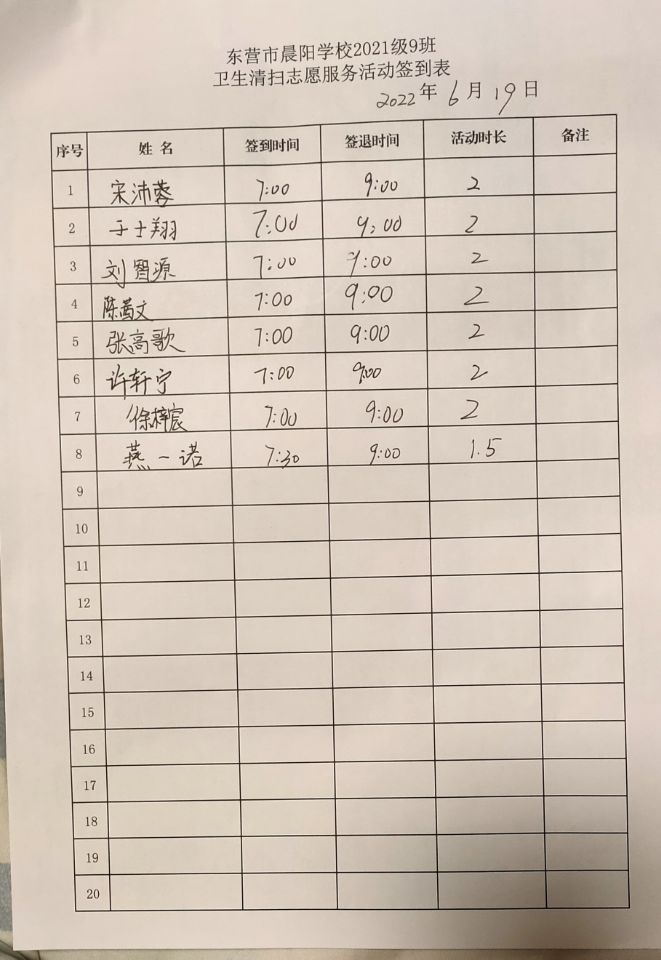 东营市晨阳学校2021级9班
卫生清扫志愿服务活动签到表
2022年 6月 19日
序号 姓名 签到时间 签退时间 活动时长 备注
1 宋沛蓉 7:00 9:00 2
2 于士翔 7:00 9:00 2
3 刘智源 7:00 9:00 2
4 陈茜文 7:00 9:00 2
5 张高歌 7:00 9:00 2
6 许轩宁 7:00 9:00 2
7 徐梓宸 7:00 9:00 2
8 燕一诺 7:30 9:00 1.5
9
10
11
12
13
14
15
16
17
18
19
20